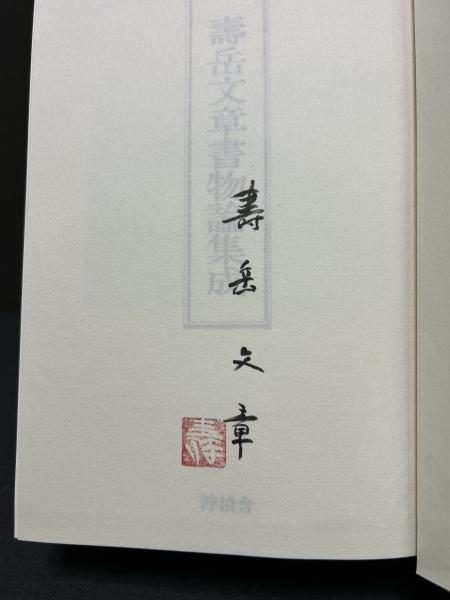 壽岳文章書物論集成
壽岳文章
壽
沖積舎